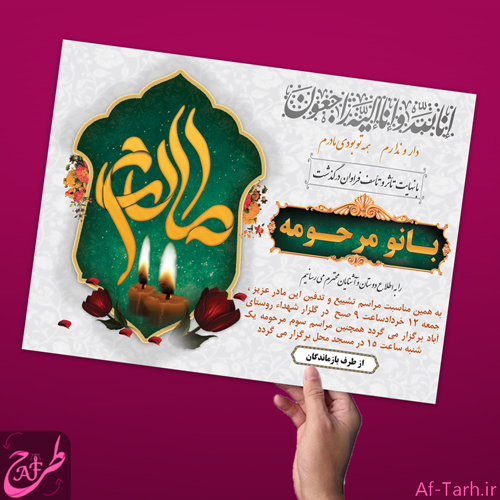 انا لله و انا الیه راجعون
دار و ندارم همه تو بودی مادرم
با نهایت تأثر و تأسف فراوان درگذشت
بانو مرحومه
را به اطلاع دوستان و آشنایان محترم می رسانیم
به همین مناسبت مراسم تشییع و تدفین این مادر عزیز ،
جمعه ۱۲ خردادساعت ۹ صبح در گلزار شهداء روستای
آباد برگزار می گردد همچنین مراسم سوم مرحومه یک
شنبه ساعت ۱۵ در مسجد محل برگزار می گردد
از طرف بازماندگان
مادرم
طرح
AF
Af-Tarh.ir